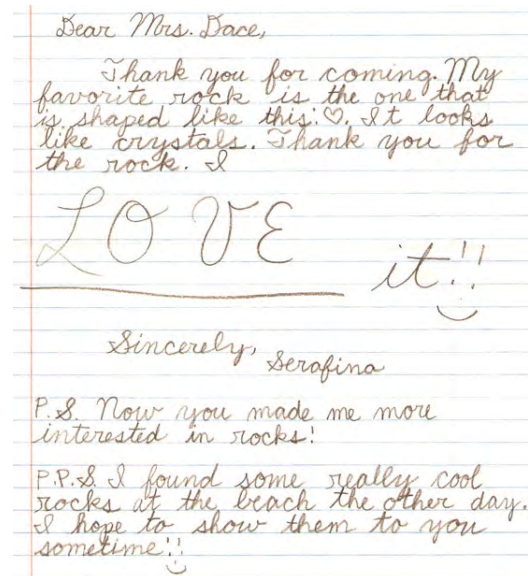 Dear Mrs. Dace,
Thank you for coming. My
favorite rock is the one that
is shaped like this: ♡. It looks
like crystals. Thank you for
the rock. I
LOVE it!!
Sincerely,
Serafina
P.S. Now you made me more
interested in rocks!
P.P.S. I found some really cool
rocks at the beach the other day.
I hope to show them to you
sometime!!